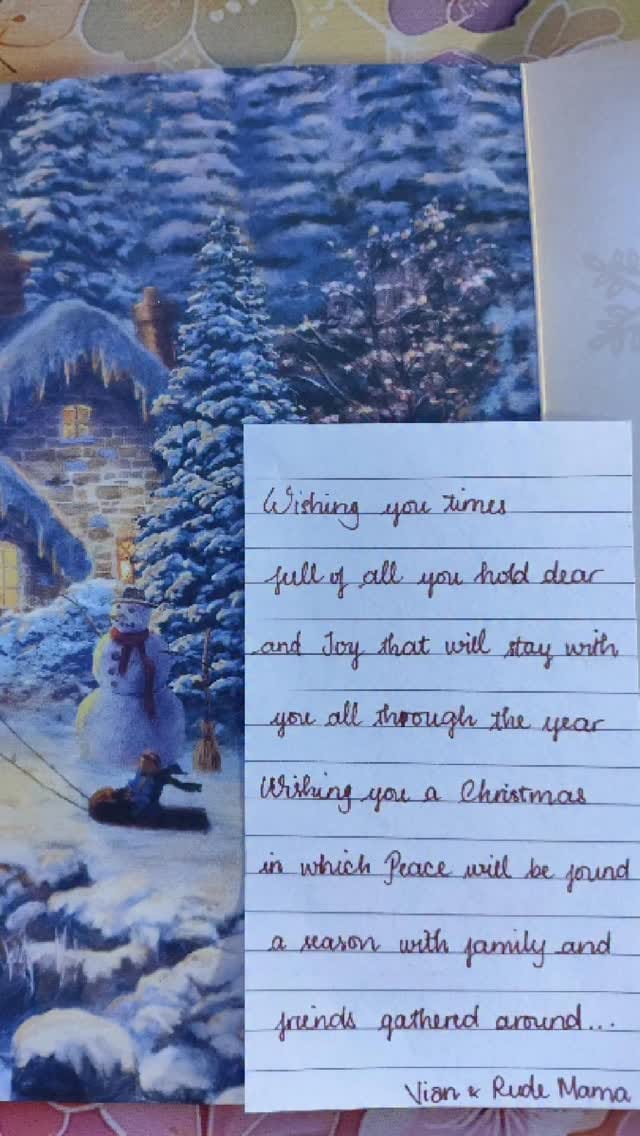 Wishing you times
full of all you hold dear
and Joy that will stay with
you all through the year
Wishing you a Christmas
in which Peace will be found
a season with family and
friends gathered around...
Vian & Rude Mama